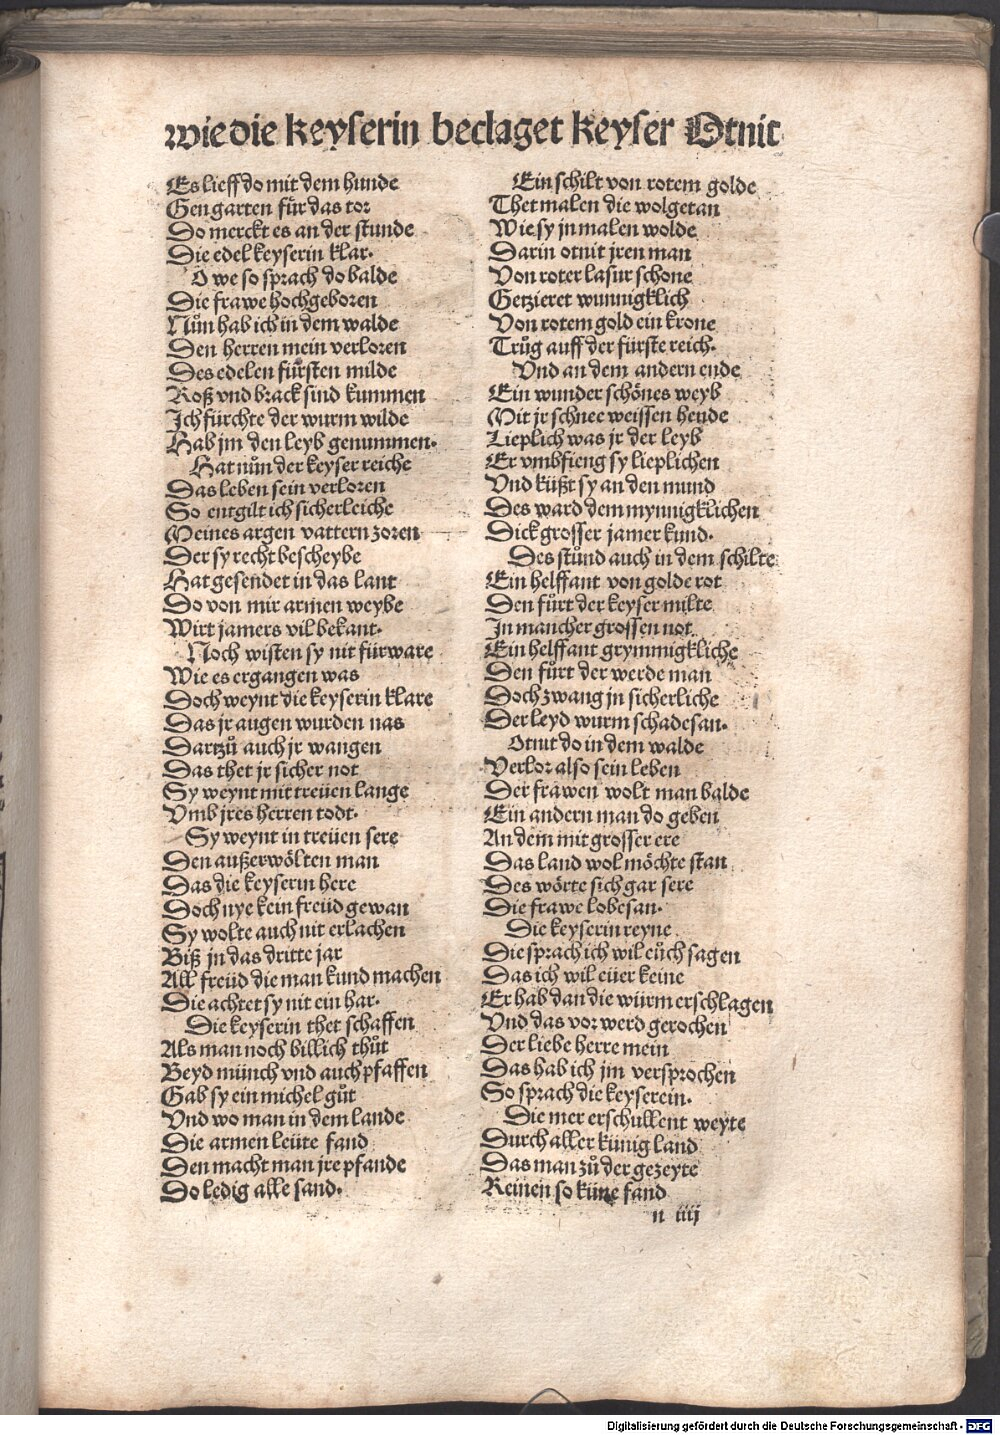 wie die keyserin beclaget keyser Otnit
Es lieff do mit dem hunde
Gen garten fúr das tor
Do merckt es an der stunde
Die edel keyserin klar.
O we so sprach do balde
Die frawe hochgeboren
Nůn hab ich in dem walde
Den herren mein verloren
Des edelen fürsten milde
Roß vnd brack sind kummen
Ich fürchte der wurm wilde
Hab jm den leyb genummen.
Hat nůn der keyser reiche
Das leben sein verloren
So entgilt ich sicherleiche
Meines argen vattern zoren
Der sy recht bescheybe
Hat gesendet in das lant
Do von mir armen weybe
Wirt jamers vil bekant.
Noch wisten sy nit fürware
Wie es ergangen was
Doch weynt die keyserin klare
Das jr augen wurden nas
Dartzů auch jr wangen
Das thet jr sicher not
Sy weynt mit treüen lange
Vmb jres herren todt.
Sy weynt in treüen sere
Den außerwölten man
Das die keyserin here
Doch nye kein freüd gewan
Sy wolte auch nit erlachen
Biß in das dritte jar
All freüd die man kund machen
Die achtet sy nit ein har.
Die keyserin thet schaffen
Als man noch billich thůt
Beyd münch vnd auch pfaffen
Gab sy ein michel gůt
Vnd wo man in dem lande
Die armen leüte fand
Den macht man jre pfande
Do ledig alle sand.
Ein schilt von rotem golde
Thet malen die wolgetan
Wie sy jn malen wolde
Darin otnit jren man
Von roter lasur schone
Getzieret wunnigklich
Von rotem gold ein krone
Trůg auff der fürste reich.
Vnd an dem andern ende
Ein wunder schönes weyb
Mit jr schnee weissen hende
Lieplich was jr der leyb
Er vmbfieng sy lieplichen
Vnd küßt sy an den mund
Des ward dem mynnigklichen
Dick grosser jamer kund.
Des stůnd auch in dem schilte
Ein helffant von golde rot
Den fůrt der keyser milte
In mancher grossen not
Ein helffant grymmigkliche
Den fůrt der werde man
Doch zwang jn sicherliche
Der leyd wurm schadesan.
Otnit do in dem walde
Verlor also sein leben
Der frawen wolt man balde
Ein andern man do geben
An dem mit grosser ere
Das land wol möchte stan
Des wörte sich gar sere
Die frawe lobesan.
Die keyserin reyne
Die sprach ich wil eüch sagen
Das ich wil eüer keine
Er hab dan die würm erschlagen
Vnd das vor werd gerochen
Der liebe herre mein
Das hab ich jm versprochen
So sprach die keyserein.
Die mer erschullent weyte
Durch aller künig land
Das man zů der gezeyte
Keinen so küne fand
n iiij
Digitalisierung gefördert durch die Deutsche Forschungsgemeinschaft - DFG